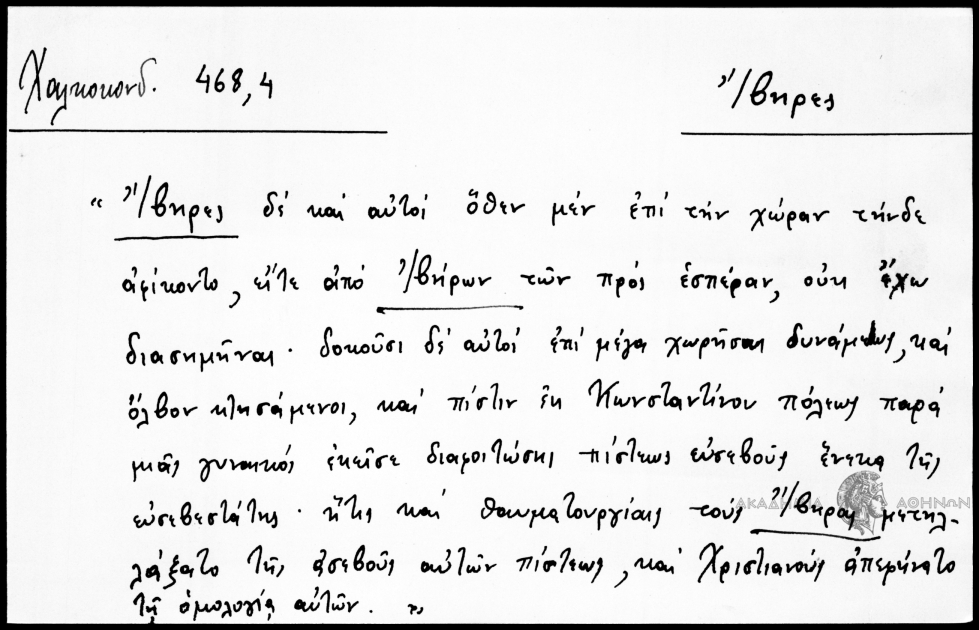 Χαλκοκονδ. 468,4
Ἴβηρες
“ Ἴβηρες δέ καί αὐτοί ὅθεν μέν ἐπί τήν χώραν τήνδε
ἀφίκοντο, εἴτε ἀπό Ἰβήρων τῶν πρός ἑσπέραν, οὐκ ἔχω
διασημῆναι · δοκοῦσι δέ αὐτοί ἐπί μέγα χωρῆσαι δυνάμεως, καί
ὄλβον κτησάμενοι, καί πίστιν ἐκ Κωνσταντίνου πόλεως παρά
μιᾶς γυναικός ἐκεῖσε διαφοιτώσης πίστεως εὐσεβοῦς ἕνεκα τῆς
εὐσεβεστάτης · ἥτις καί θαυματουργίαις τούς Ἴβηρας μετηλ-
λάξατο τῆς ἀσεβοῦς αὐτῶν πίστεως, καί Χριστιανούς ἀπεφήνατο
τῇ ὁμολογίᾳ αὐτῶν. ”
ΑΚΑΔΗΜΙΑ ΑΘΗΝΩΝ